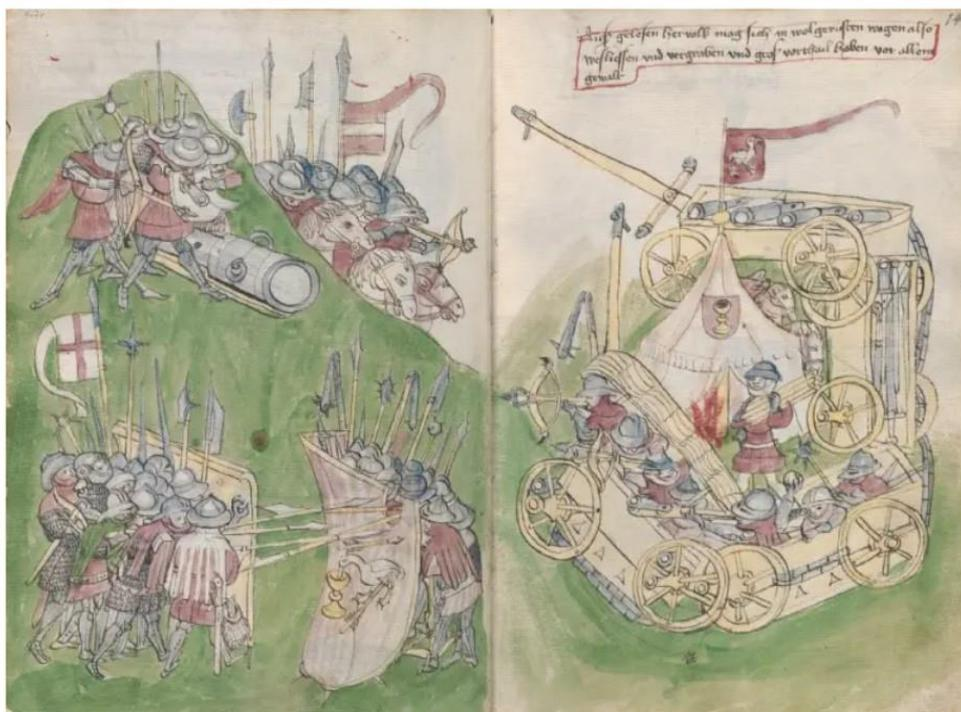 gelosen hervolk mag sich in wolgerusten wagen also
besliessen und vergraben und gros vorthail haben vor allem
gewalt
14